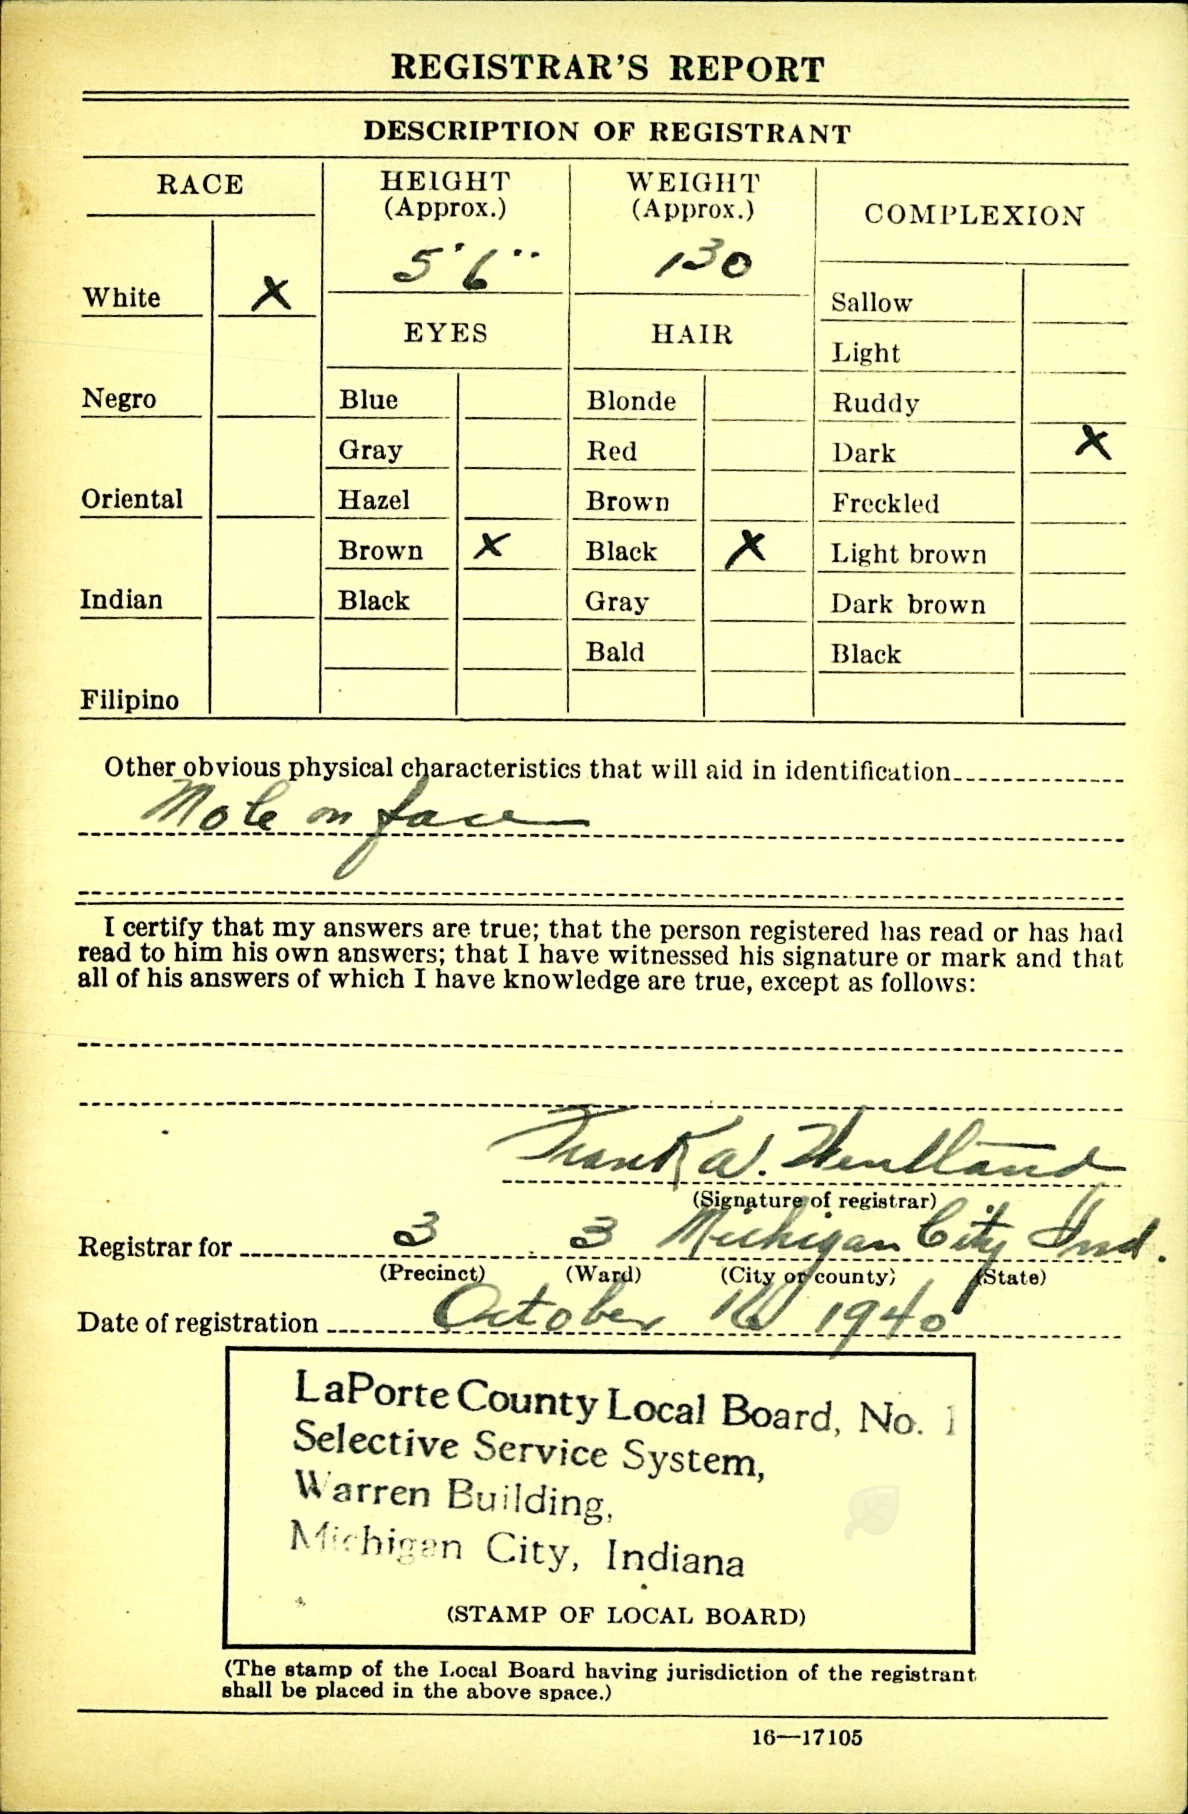 REGISTRAR'S REPORT
DESCRIPTION OF REGISTRANT
RACE
HEIGHT
(Approx.)
WEIGHT
(Approx.)
COMPLEXION
5' 6"
130
White X
Sallow
EYES
HAIR
Light
Negro
Blue
Blonde
Ruddy
Gray
Red
Dark X
Oriental
Hazel
Brown
Freckled
Brown X
Black X
Light brown
Indian
Black
Gray
Dark brown
Bald
Black
Filipino
Other obvious physical characteristics that will aid in identification
Mole on face
I certify that my answers are true; that the person registered has read or has had
read to him his own answers; that I have witnessed his signature or mark and that
all of his answers of which I have knowledge are true, except as follows:
Frank W. Wentland
(Signature of registrar)
Registrar for 3 3 Michigan City Ind.
(Precinct) (Ward) (City or county) (State)
Date of registration October 16 1940
LaPorte County Local Board, No. 1
Selective Service System,
Warren Building,
Michigan City, Indiana
(STAMP OF LOCAL BOARD)
(The stamp of the Local Board having jurisdiction of the registrant
shall be placed in the above space.)
16—17105